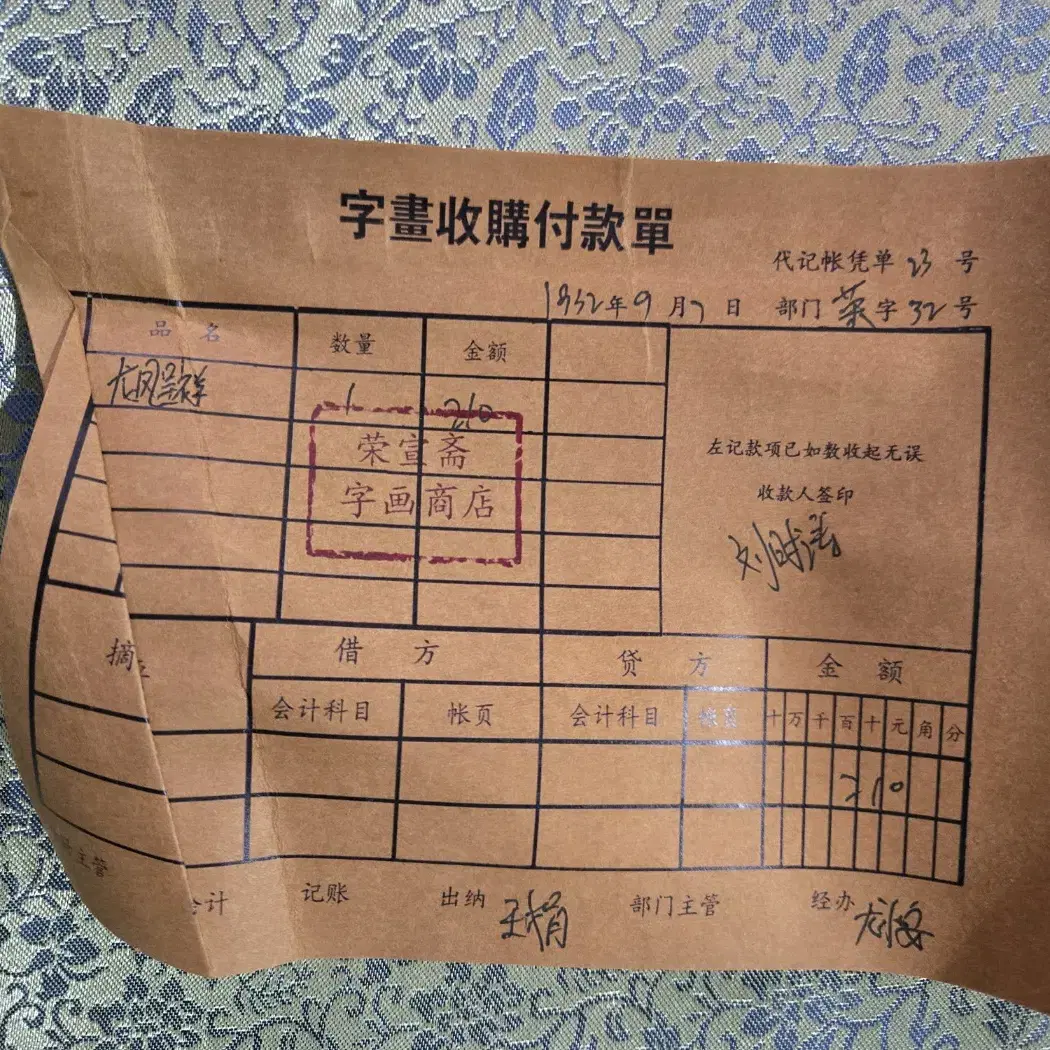 字畫收購付款單
代记帐凭单 23 号
1952年9月7日 部门 荣字32号
品名 数量 金额
龙凤呈祥 1 210
荣宣斋
字画商店
左记款项已如数收起无误
收款人签印
摘 借方 贷方 金额
会计科目 帐页 会计科目 帐页 十 万 千 百 十 元 角 分
210
主管 会计 记账 出纳 部门主管 经办